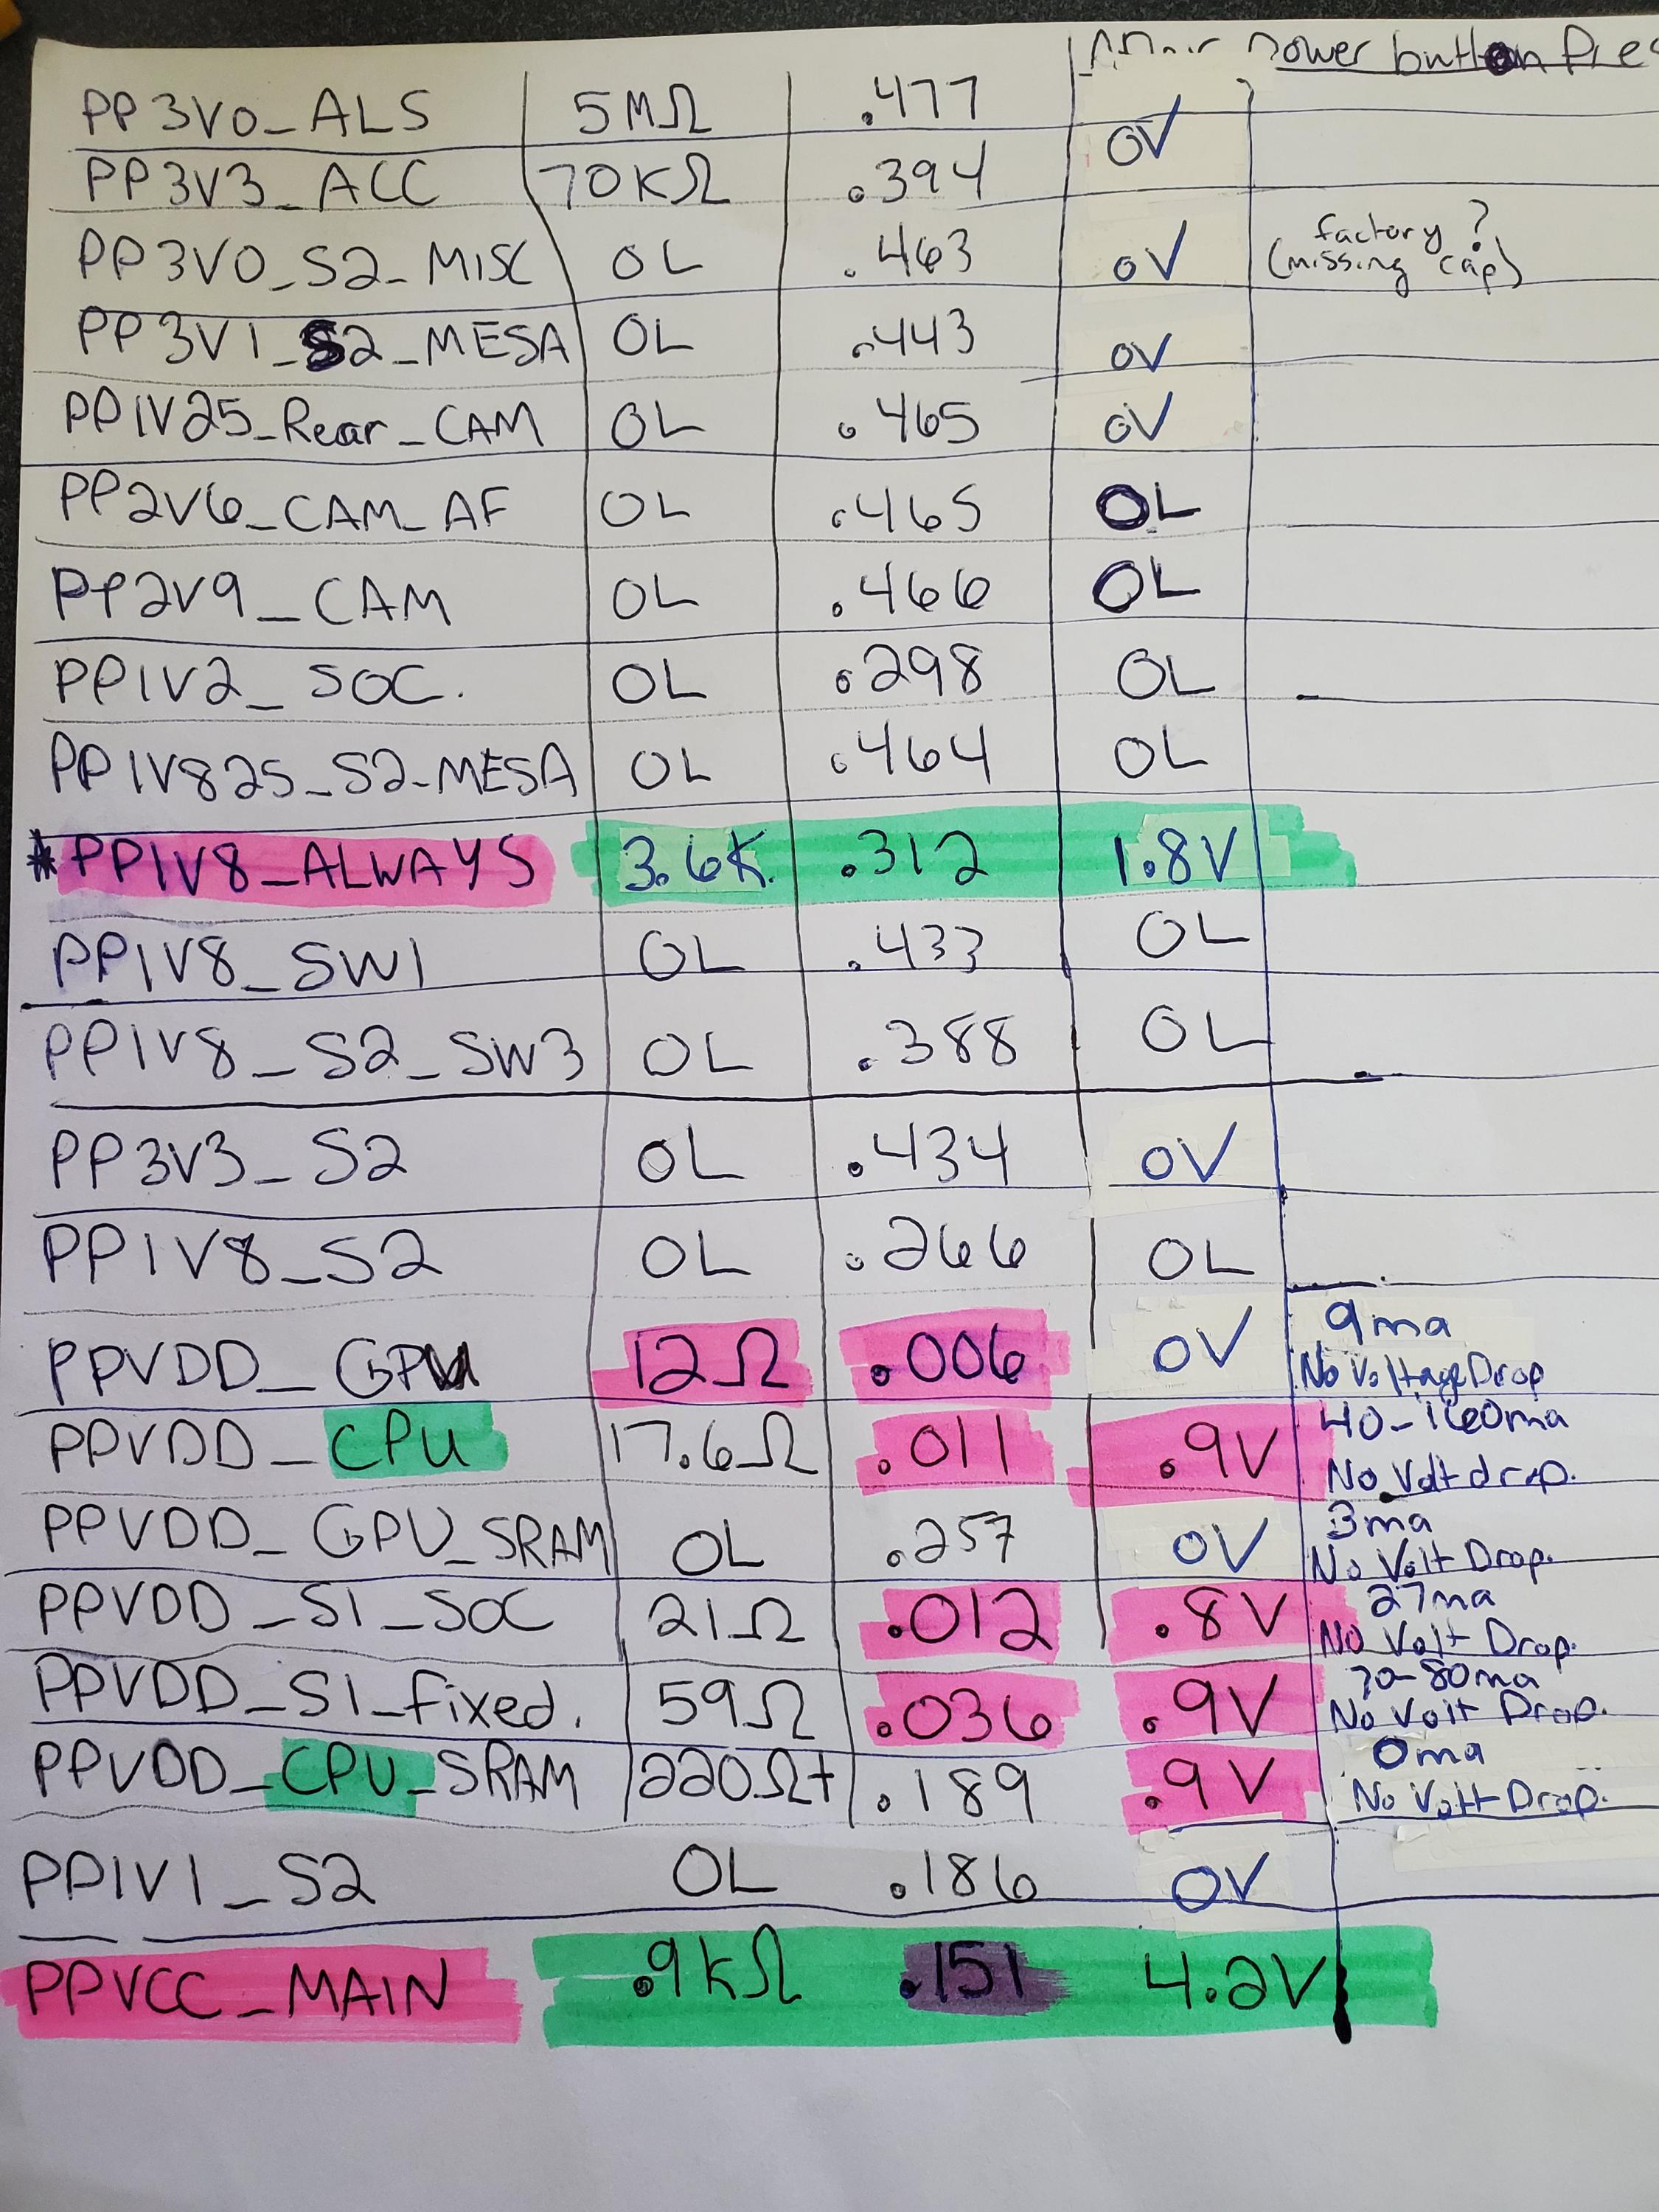 power button Pre
PP3V0_ALS 5MΩ .477 0V
PP3V3_ACC 70KΩ .394
PP3V0_S2_MISC OL .463 0V factory?
(missing cap)
PP3V1_S2_MESA OL .443 0V
PP1V25_Rear_CAM OL .465 0V
PP2V6_CAM_AF OL .465 OL
PP2V9_CAM OL .466 OL
PP1V2_SOC. OL .298 OL
PP1V825_S2_MESA OL .464 OL
*PP1V8_ALWAYS 3.6K .312 1.8V
PP1V8_SW1 OL .433 OL
PP1V8_S2_SW3 OL .388 OL
PP3V3_S2 OL .434 0V
PP1V8_S2 OL .266 OL
PPVDD_GPU 12Ω .006 0V 9ma
No Voltage Drop
PPVDD_CPU 17.6Ω .011 .9V 40-160ma
No Volt drop.
PPVDD_GPU_SRAM OL .257 0V 3ma
No Volt Drop.
PPVDD_S1_SOC 21Ω .012 .8V 27ma
No Volt Drop.
PPVDD_S1_fixed. 59Ω .036 .9V 70-80ma
No Volt Drop.
PPVDD_CPU_SRAM 220Ω+ .189 .9V 0ma
No Volt Drop.
PP1V1_S2 OL .186 0V
PPVCC_MAIN .9kΩ .151 4.2V